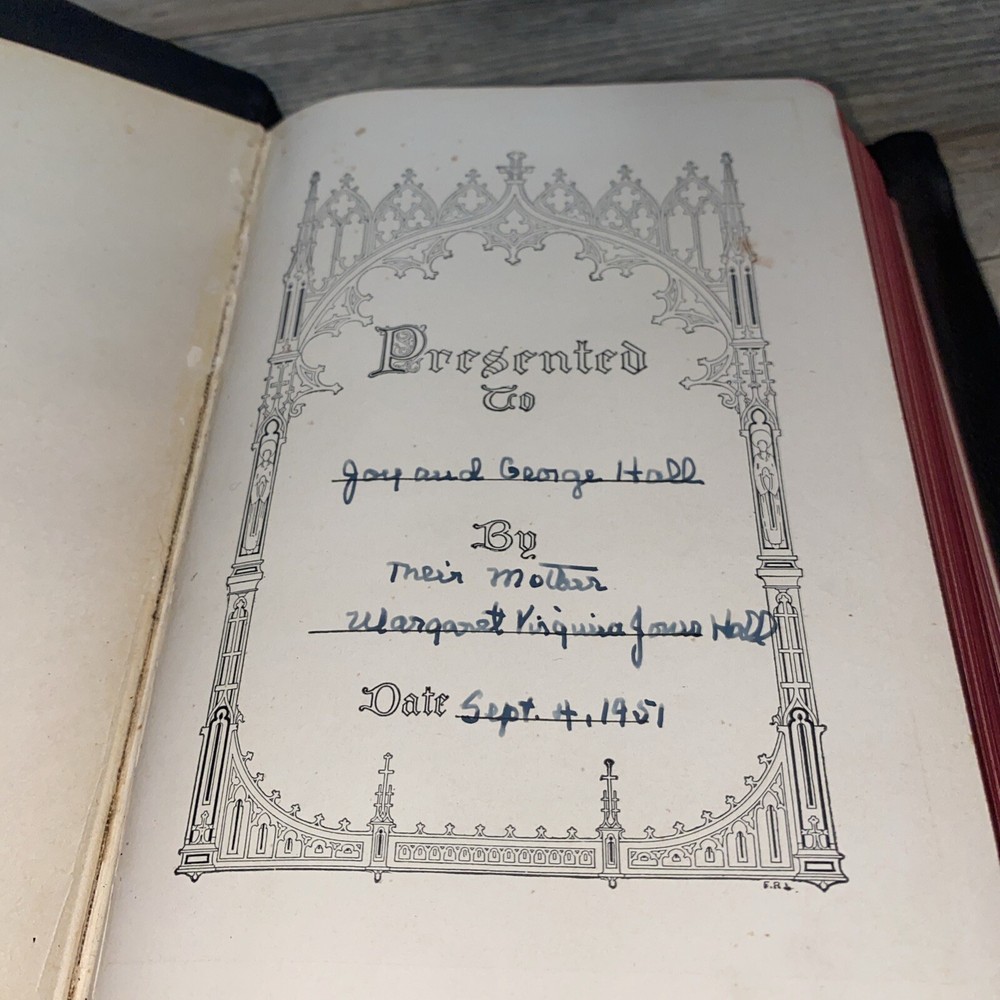 Presented
To
Joy and George Hall
By
Their Mother
Margaret Virginia Jones Hall
Date Sept. 4, 1951
F.R.L.